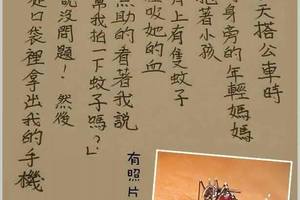 天搭公車時
身旁的年輕媽媽
抱著小孩
背上有隻蚊子
吸她的血
無助的看著我說
幫我拍一下蚊子嗎?」
說沒問題！然後
從口袋裡拿出我的手機
有照片